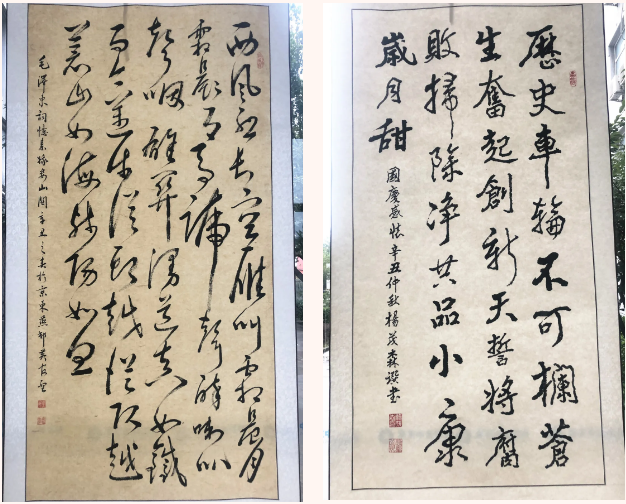 西風烈長空雁叫霜晨月
霜晨月馬蹄聲碎喇叭
聲咽雄關漫道真如鐵
而今邁步從頭越從頭越
蒼山如海殘陽如血
毛澤東詞憶秦娥婁山關辛丑之春於京東燕郊
歷史車輪不可欄蒼
生奮起創新天誓將腐
敗掃除净共品小康
歲月甜
國慶感懷辛丑仲秋楊茂森撰書